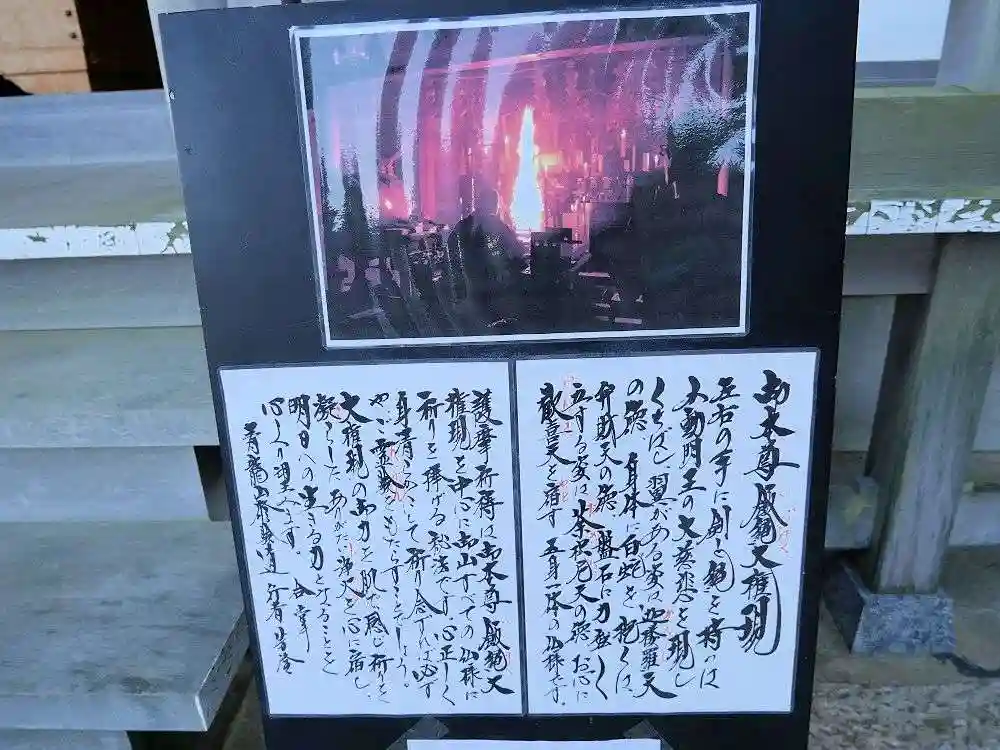 御本尊 飯縄大権現
左右の手に剣と縄を持つは
不動明王の大慈悲を現し
くちばし 翼がある姿は迦楼羅天
の徳 身体に白蛇を抱くは、
弁財天の徳 盤石に力強く
立する姿は荼枳尼天の徳 お心に
歓喜天を宿す 五身一体の仏様です。
護摩祈祷は御本尊 飯縄大
権現を中心に御山すべての仏様に
祈りを捧げる秘法です。心正しく
身清らかにして祈り念ずれば必ず
や、霊験をもたらすことでしょう。
大権現の御力を肌で感じ祈りを
凝らした ありがたい浄火を心に宿し、
明日への生きる力となることを
心より望みます。 合掌
青龍山 修験道 行者